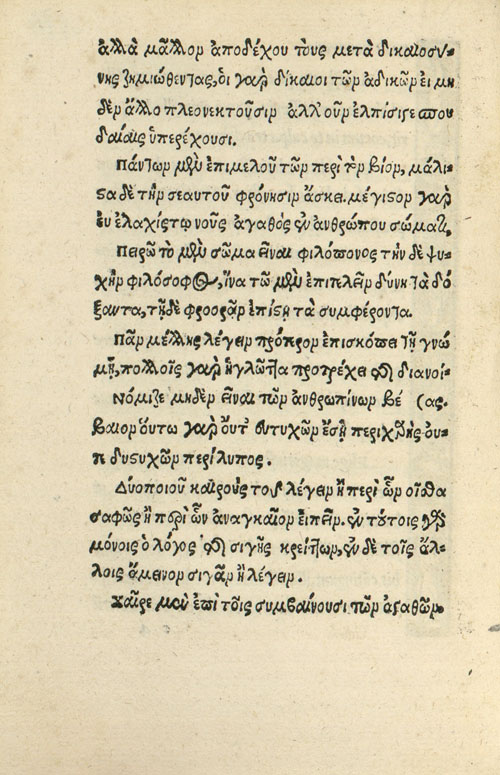 ἀλλὰ μᾶλλον ἀποδέχου τοὺς μετὰ δικαιοσύ-
νης ζημιωθέντας, ὁι γὰρ δίκαιοι τῶν ἀδικῶν εἰ μη
δὲν ἄλλο πλεονεκτοῦσιν ἀλλ' οὖν ἐλπίσιγε σπου
δαίαις ὑπερέχουσι.
Πάντων μὲν ἐπιμελοῦ τῶν περὶ τὸν βίον, μάλι-
στα δὲ τὴν σεαυτοῦ φρόνησιν ἄσκει. μέγιστον γὰρ
ἐν ἐλαχίστῳ νοῦς ἀγαθὸς ἐν ἀνθρώπου σώματι.
Πειρῶ τὸ μὲν σῶμα εἶναι φιλόπονος τὴν δὲ ψυ-
χὴν φιλόσοφος, ἵνα τῶ μὲν ἐπιτελεῖν δύνῃ τὰ δό
ξαντα, τῇ δὲ προορᾶν ἐπίστῃ τὰ συμφέροντα.
Πᾶν μέλλῃς λέγειν πρότερον ἐπισκόπει τῇ γνώ
μῃ, πολλοῖς γὰρ ἡ γλῶττα προτρέχει τῆς διανοί-
Νόμιζε μηδὲν εἶναι τῶν ἀνθρωπίνων βέ (ας.
βαιον ὅυτω γὰρ οὔτ' ἐυτυχῶν ἔσῃ περιχαρὴς ὄυ-
τε δυστυχῶν περίλυπος.
Δύο ποιοῦ καιροὺς τοῦ λέγειν ἢ περὶ ὧν οἶσθα
σαφῶς ἢ περὶ ὧν ἀναγκαῖον εἰπεῖν. ἐν τούτοις γὰρ
μόνοις ὁ λόγος τῆς σιγῆς κρείττων, ἐν δὲ τοῖς ἄλ-
λοις ἄμεινον σιγᾶν ἢ λέγειν.
Χαῖρε μὲν ἐπὶ τοῖς συμβαίνουσι τῶν ἀγαθῶν.